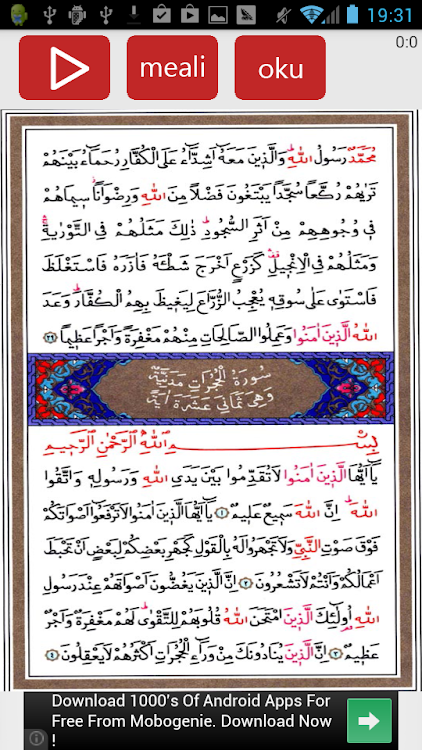 19:31
meali
oku
0:0
مُحَمَّدٌ رَسُولُ اللّٰهِ وَالَّذ۪ينَ مَعَهُٓ اَشِدَّٓاءُ عَلَى الْكُفَّارِ رُحَمَٓاءُ بَيْنَهُمْ
تَرٰيهُمْ رُكَّعًا سُجَّدًا يَبْتَغُونَ فَضْلًا مِنَ اللّٰهِ وَرِضْوَانًا س۪يمَاهُمْ
ف۪ي وُجُوهِهِمْ مِنْ اَثَرِ السُّجُودِ ذٰلِكَ مَثَلُهُمْ فِي التَّوْرٰيةِ
وَمَثَلُهُمْ فِي الْاِنْج۪يلِ كَزَرْعٍ اَخْرَجَ شَطْـَٔهُ فَاٰزَرَهُ فَاسْتَغْلَظَ
فَاسْتَوٰى عَلٰى سُوقِه۪ يُعْجِبُ الزُّرَّاعَ لِيَغ۪يظَ بِهِمُ الْكُفَّارَ وَعَدَ
اللّٰهُ الَّذ۪ينَ اٰمَنُوا وَعَمِلُوا الصَّالِحَاتِ مِنْهُمْ مَغْفِرَةً وَاَجْرًا عَظ۪يمًا ﴿٢٩﴾
سُورَةُ الْحُجُرَاتِ مَدَنِيَّةٌ
وَهِيَ ثَمَانِيَ عَشْرَةَ اٰيَةً
بِسْمِ اللّٰهِ الرَّحْمٰنِ الرَّح۪يمِ
يَٓا اَيُّهَا الَّذ۪ينَ اٰمَنُوا لَا تُقَدِّمُوا بَيْنَ يَدَيِ اللّٰهِ وَرَسُولِه۪ وَاتَّقُوا
اللّٰهَ اِنَّ اللّٰهَ سَم۪يعٌ عَل۪يمٌ ﴿١﴾ يَٓا اَيُّهَا الَّذ۪ينَ اٰمَنُوا لَا تَرْفَعُٓوا اَصْوَاتَكُمْ
فَوْقَ صَوْتِ النَّبِيِّ وَلَا تَجْهَرُوا لَهُ بِالْقَوْلِ كَجَهْرِ بَعْضِكُمْ لِبَعْضٍ اَنْ تَحْبَطَ
اَعْمَالُكُمْ وَاَنْتُمْ لَا تَشْعُرُونَ ﴿٢﴾ اِنَّ الَّذ۪ينَ يَغُضُّونَ اَصْوَاتَهُمْ عِنْدَ رَسُولِ
اللّٰهِ اُولٰٓئِكَ الَّذ۪ينَ امْتَحَنَ اللّٰهُ قُلُوبَهُمْ لِلتَّقْوٰى لَهُمْ مَغْفِرَةٌ وَاَجْرٌ
عَظ۪يمٌ ﴿٣﴾ اِنَّ الَّذ۪ينَ يُنَادُونَكَ مِنْ وَرَٓاءِ الْحُجُرَاتِ اَكْثَرُهُمْ لَا يَعْقِلُونَ ﴿٤﴾
Download 1000's Of Android Apps For
Free From Mobogenie. Download Now
!